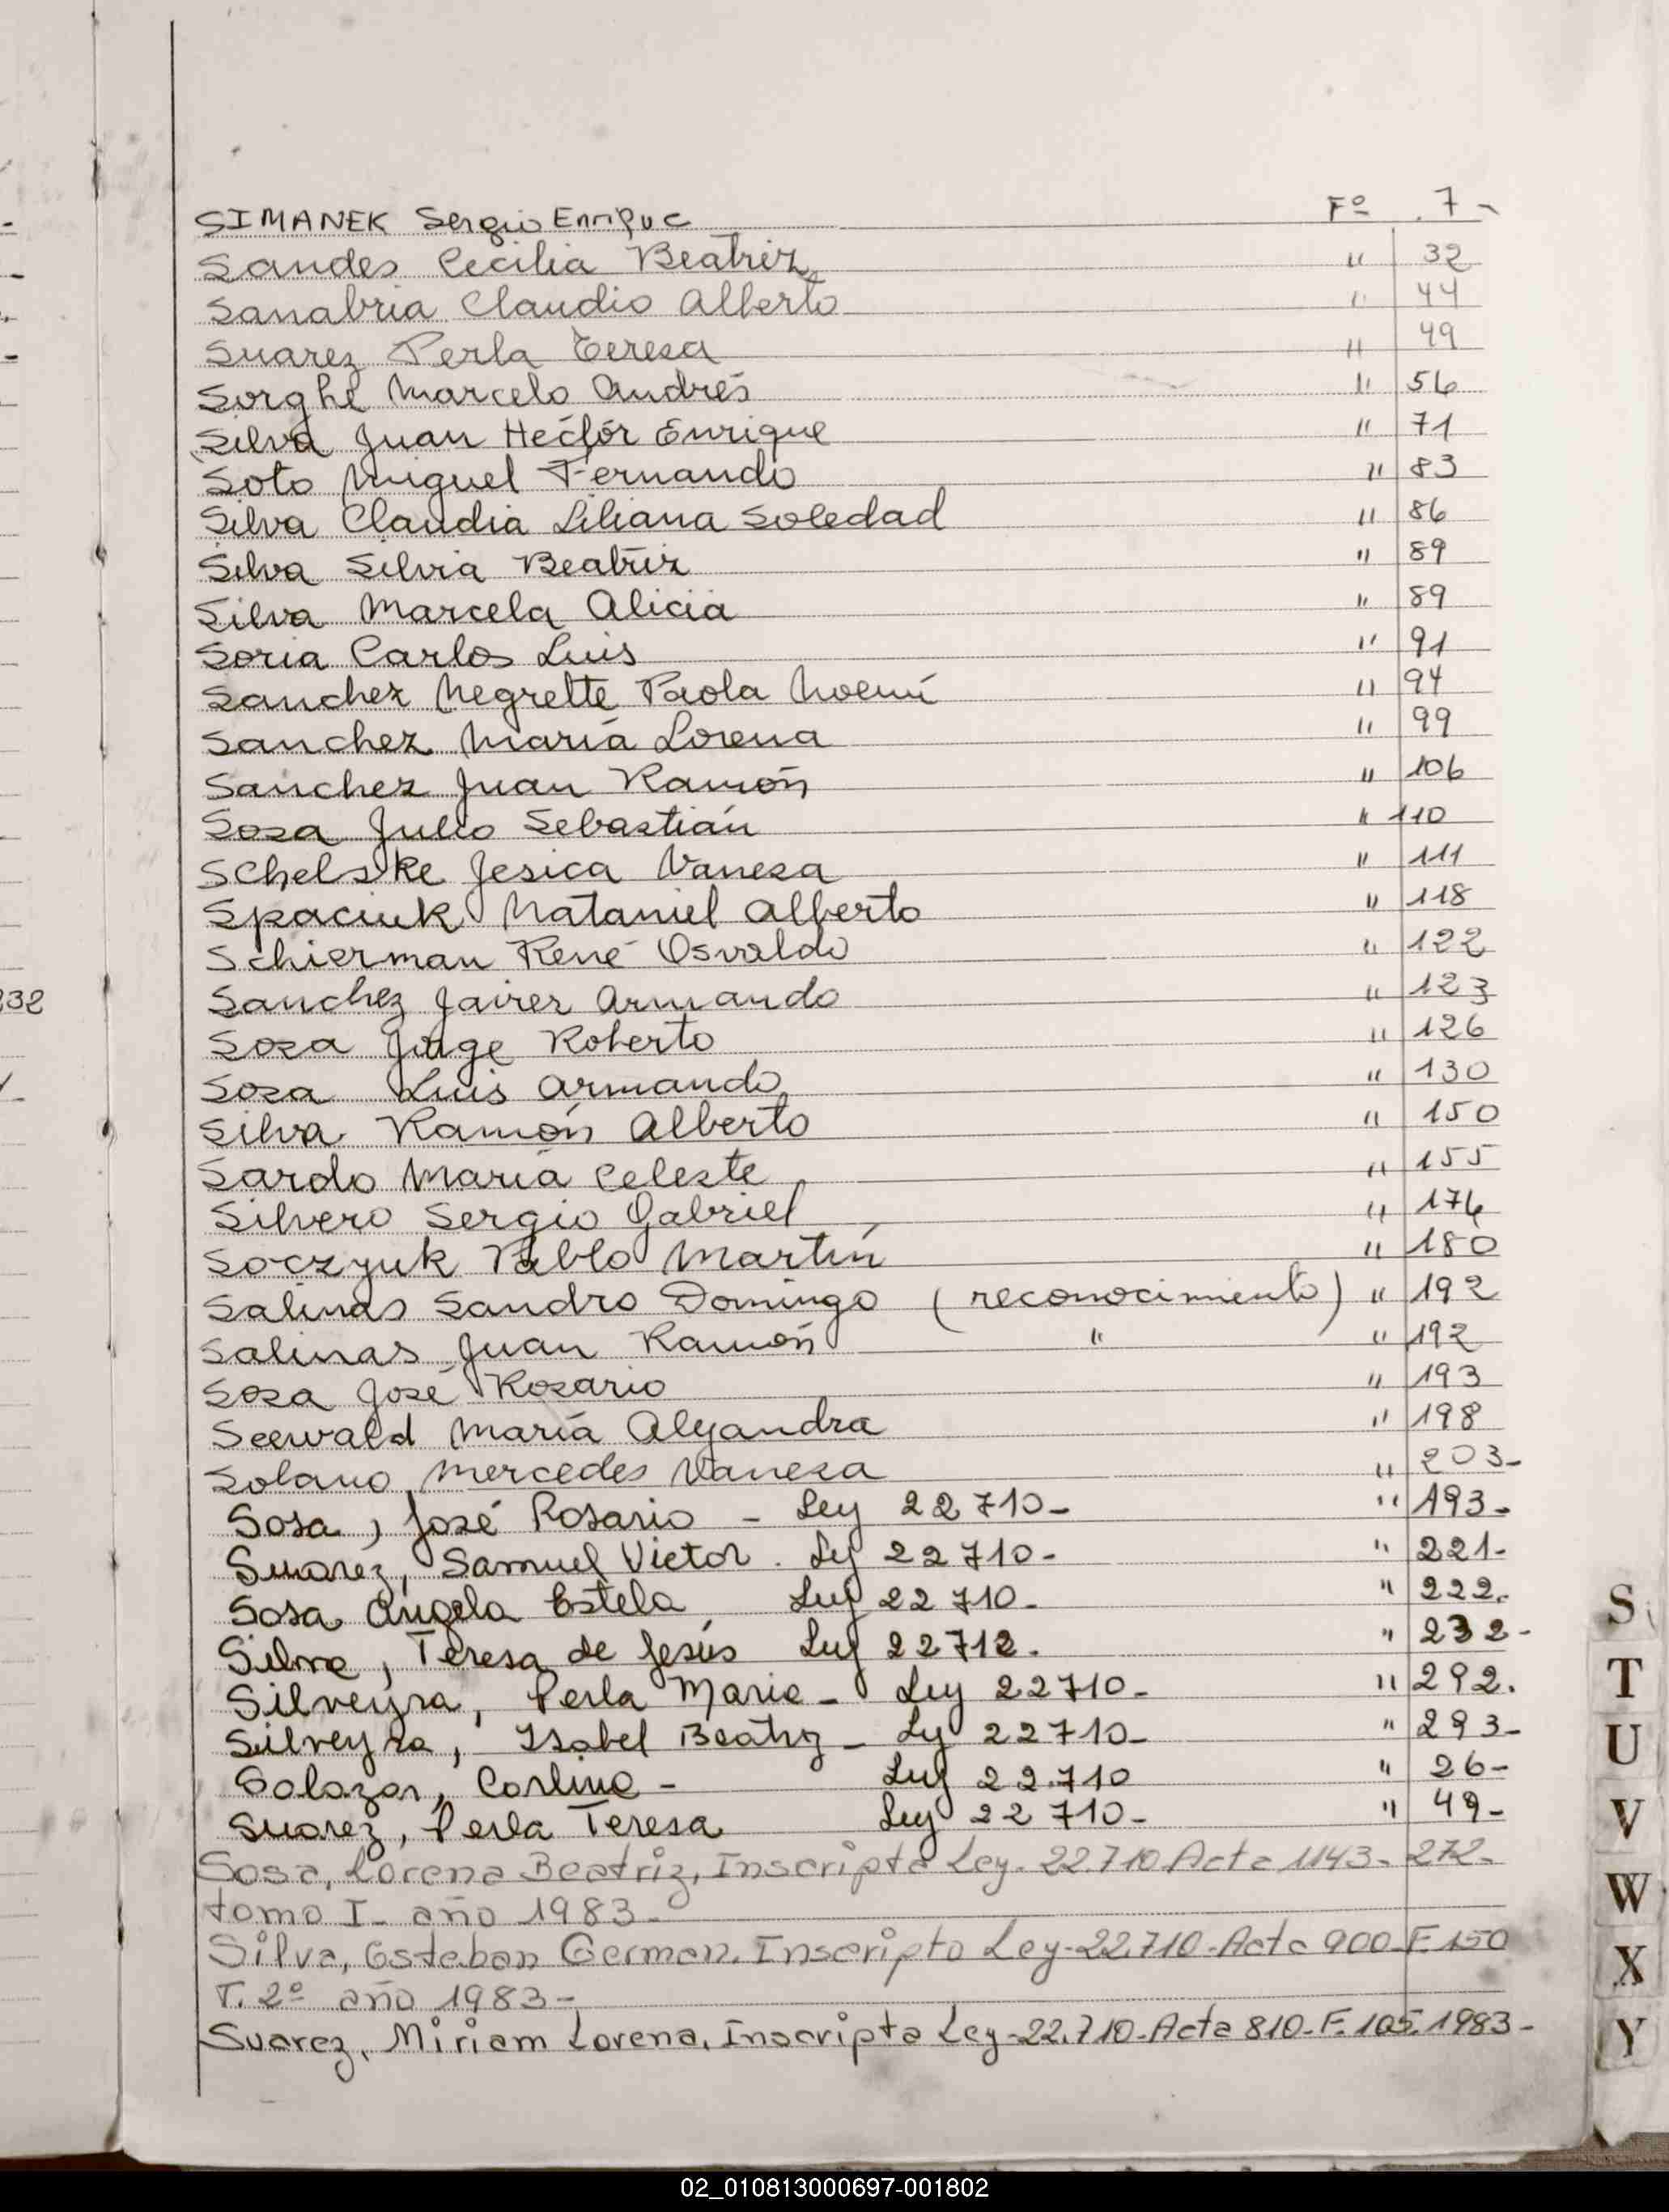 SIMANEK Sergio Enrique Fº 7-
Sandes Cecilia Beatriz " 32
Sanabria Claudio Alberto " 44
Suarez Perla Teresa " 49
Sorghe Marcelo Andrés " 56
Silva Juan Hectór Enrique " 71
Soto Miguel Fernando " 83
Silva Claudia Liliana Soledad " 86
Silva Silvia Beatriz " 89
Silva Marcela Alicia " 89
Soria Carlos Luis " 91
Sanchez Negrette Paola Noemí " 94
Sanchez María Lorena " 99
Sanchez Juan Ramón " 106
Sosa Julio Sebastián " 110
Schelske Jesica Vanesa " 111
Spaciuk Nataniel Alberto " 118
Schierman René Osvaldo " 122
Sanchez Javier Armando " 123
Sosa Jorge Roberto " 126
Sosa Luis Armando " 130
Silva Ramón Alberto " 150
Sardo María Celeste " 155
Silvero Sergio Gabriel " 176
Soczyuk Pablo Martín " 180
Salinas Sandro Domingo (reconocimiento) " 192
Salinas Juan Ramón " " 192
Sosa José Rosario " 193
Seewald María Alejandra " 198
Solano Mercedes Vanesa " 203-
Sosa, José Rosario - Ley 22710- " 193-
Suarez, Samuel Victor. Ley 22710- " 221-
Sosa Angela Estela Ley 22710- " 222.
Silva, Teresa de Jesús Ley 22712. " 232-
Silveyra, Perla Maria- Ley 22710- " 292.
Silveyra, Isabel Beatriz- Ley 22710- " 293-
Salazar, Carlina - Ley 22.710 " 26-
Suarez, Perla Teresa Ley 22710- " 49-
Sosa, Lorena Beatriz, Inscripta Ley-22.710 Acta 1143- 272-
tomo I- año 1983-
Silva, Esteban German. Inscripto Ley-22.710-Acta 900-F.150
T. 2º año 1983-
Suarez, Miriam Lorena, Inscripta Ley-22.710-Acta 810-F.105.1983-
232
S
T
U
V
W
X
Y
02_010813000697-001802